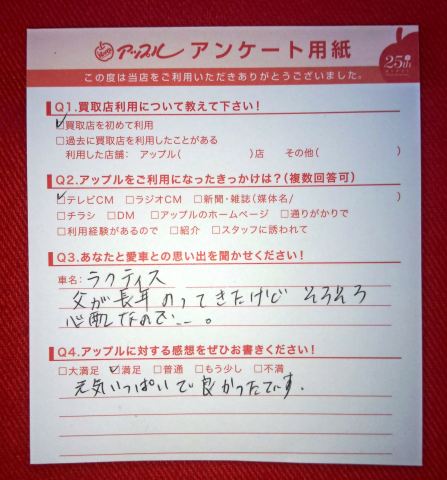 アップル アンケート用紙
25th
この度は当店をご利用いただきありがとうございました。
Q1.買取店利用について教えて下さい!
□買取店を初めて利用
□過去に買取店を利用したことがある
利用した店舗: アップル( )店 その他( )
Q2.アップルをご利用になったきっかけは?(複数回答可)
□テレビCM □ラジオCM □新聞・雑誌(媒体名/ )
□チラシ □DM □アップルのホームページ □通りがかりで
□利用経験があるので □紹介 □スタッフに誘われて
Q3.あなたと愛車との思い出を聞かせください!
車名: ラクティス
父が長年のってきたけど そろそろ
心配なので…。
Q4.アップルに対する感想をぜひお書きください!
□大満足 □満足 □普通 □もう少し □不満
元気いっぱいで良かったです.